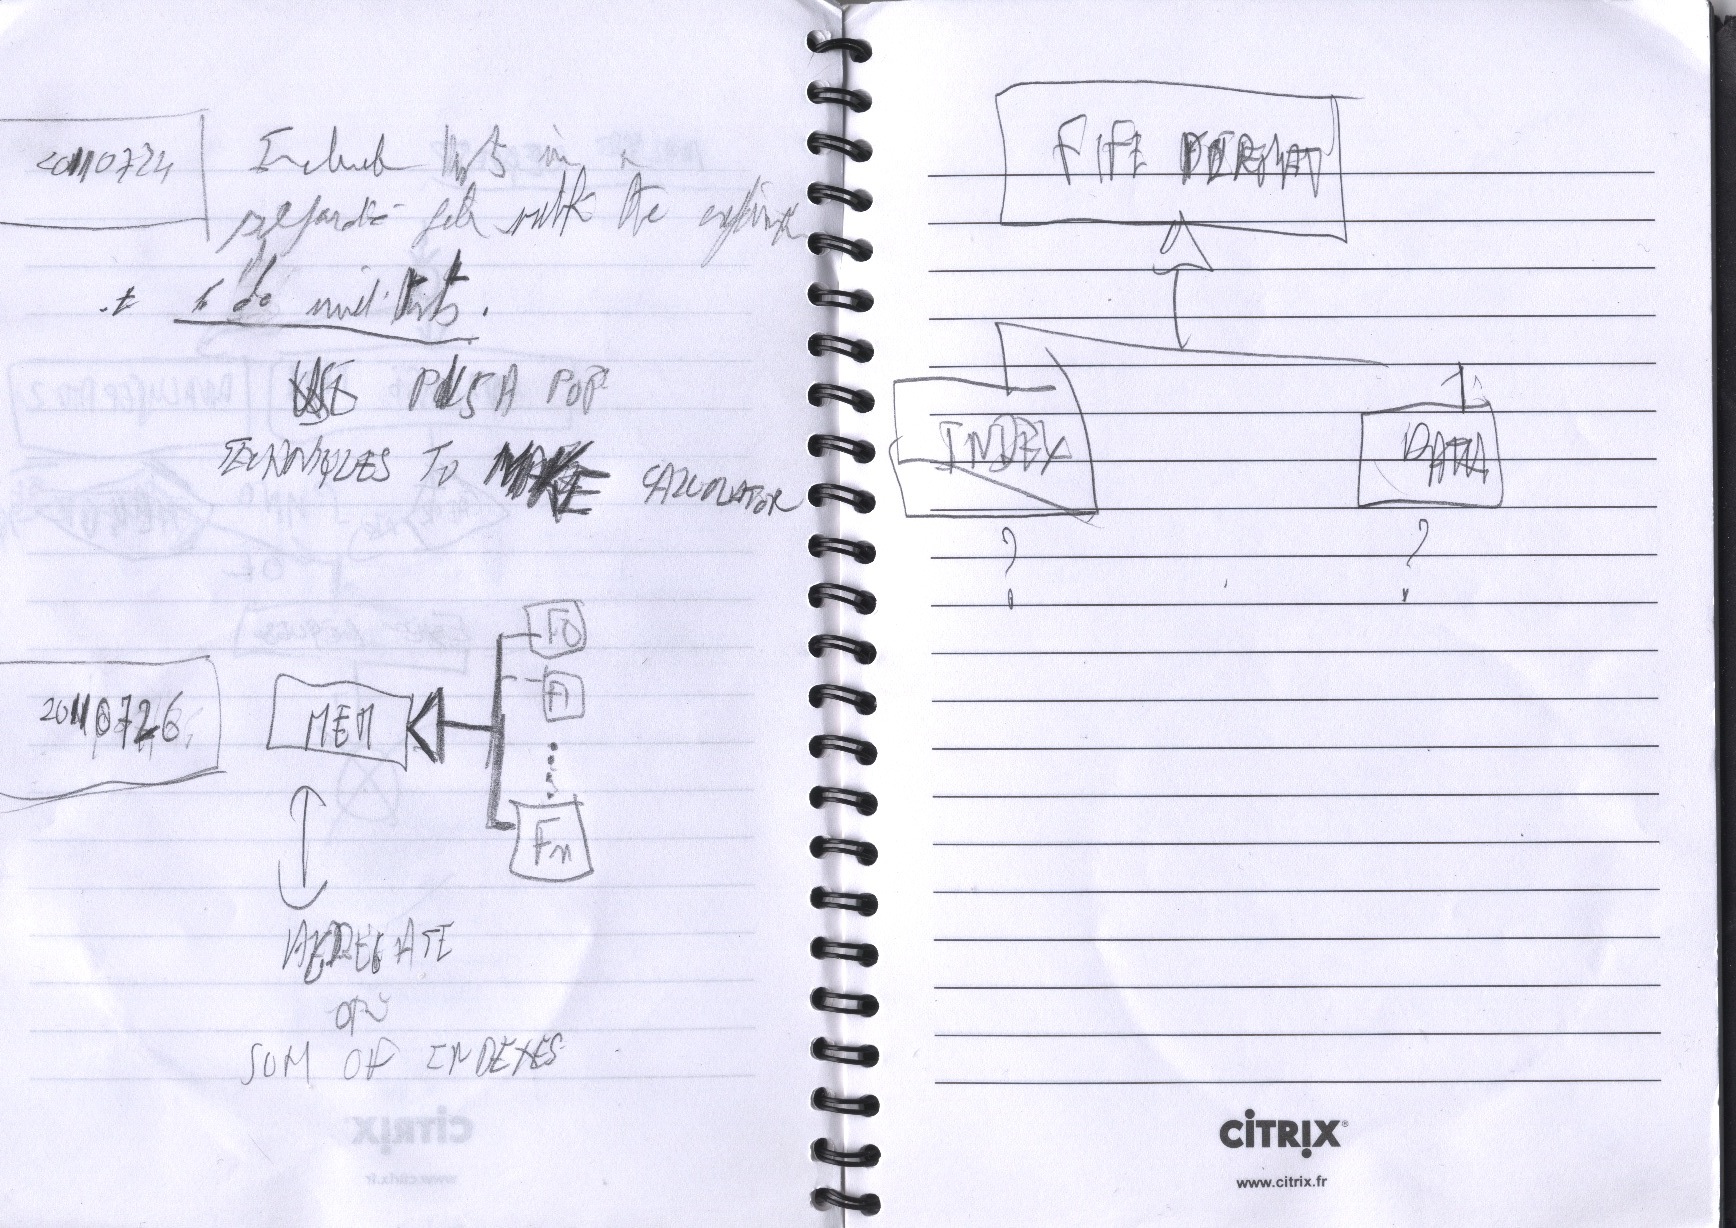 20110724
Include lists in a
separate file with the
to do unit tests.
USE PUSH POP
TECHNIQUES TO MAKE CALCULATOR
20110726
MEM
F0
F1
Fn
OR
SUM OF INDEXES
INDEX
DATA
?
?
CiTRIX®
www.citrix.fr